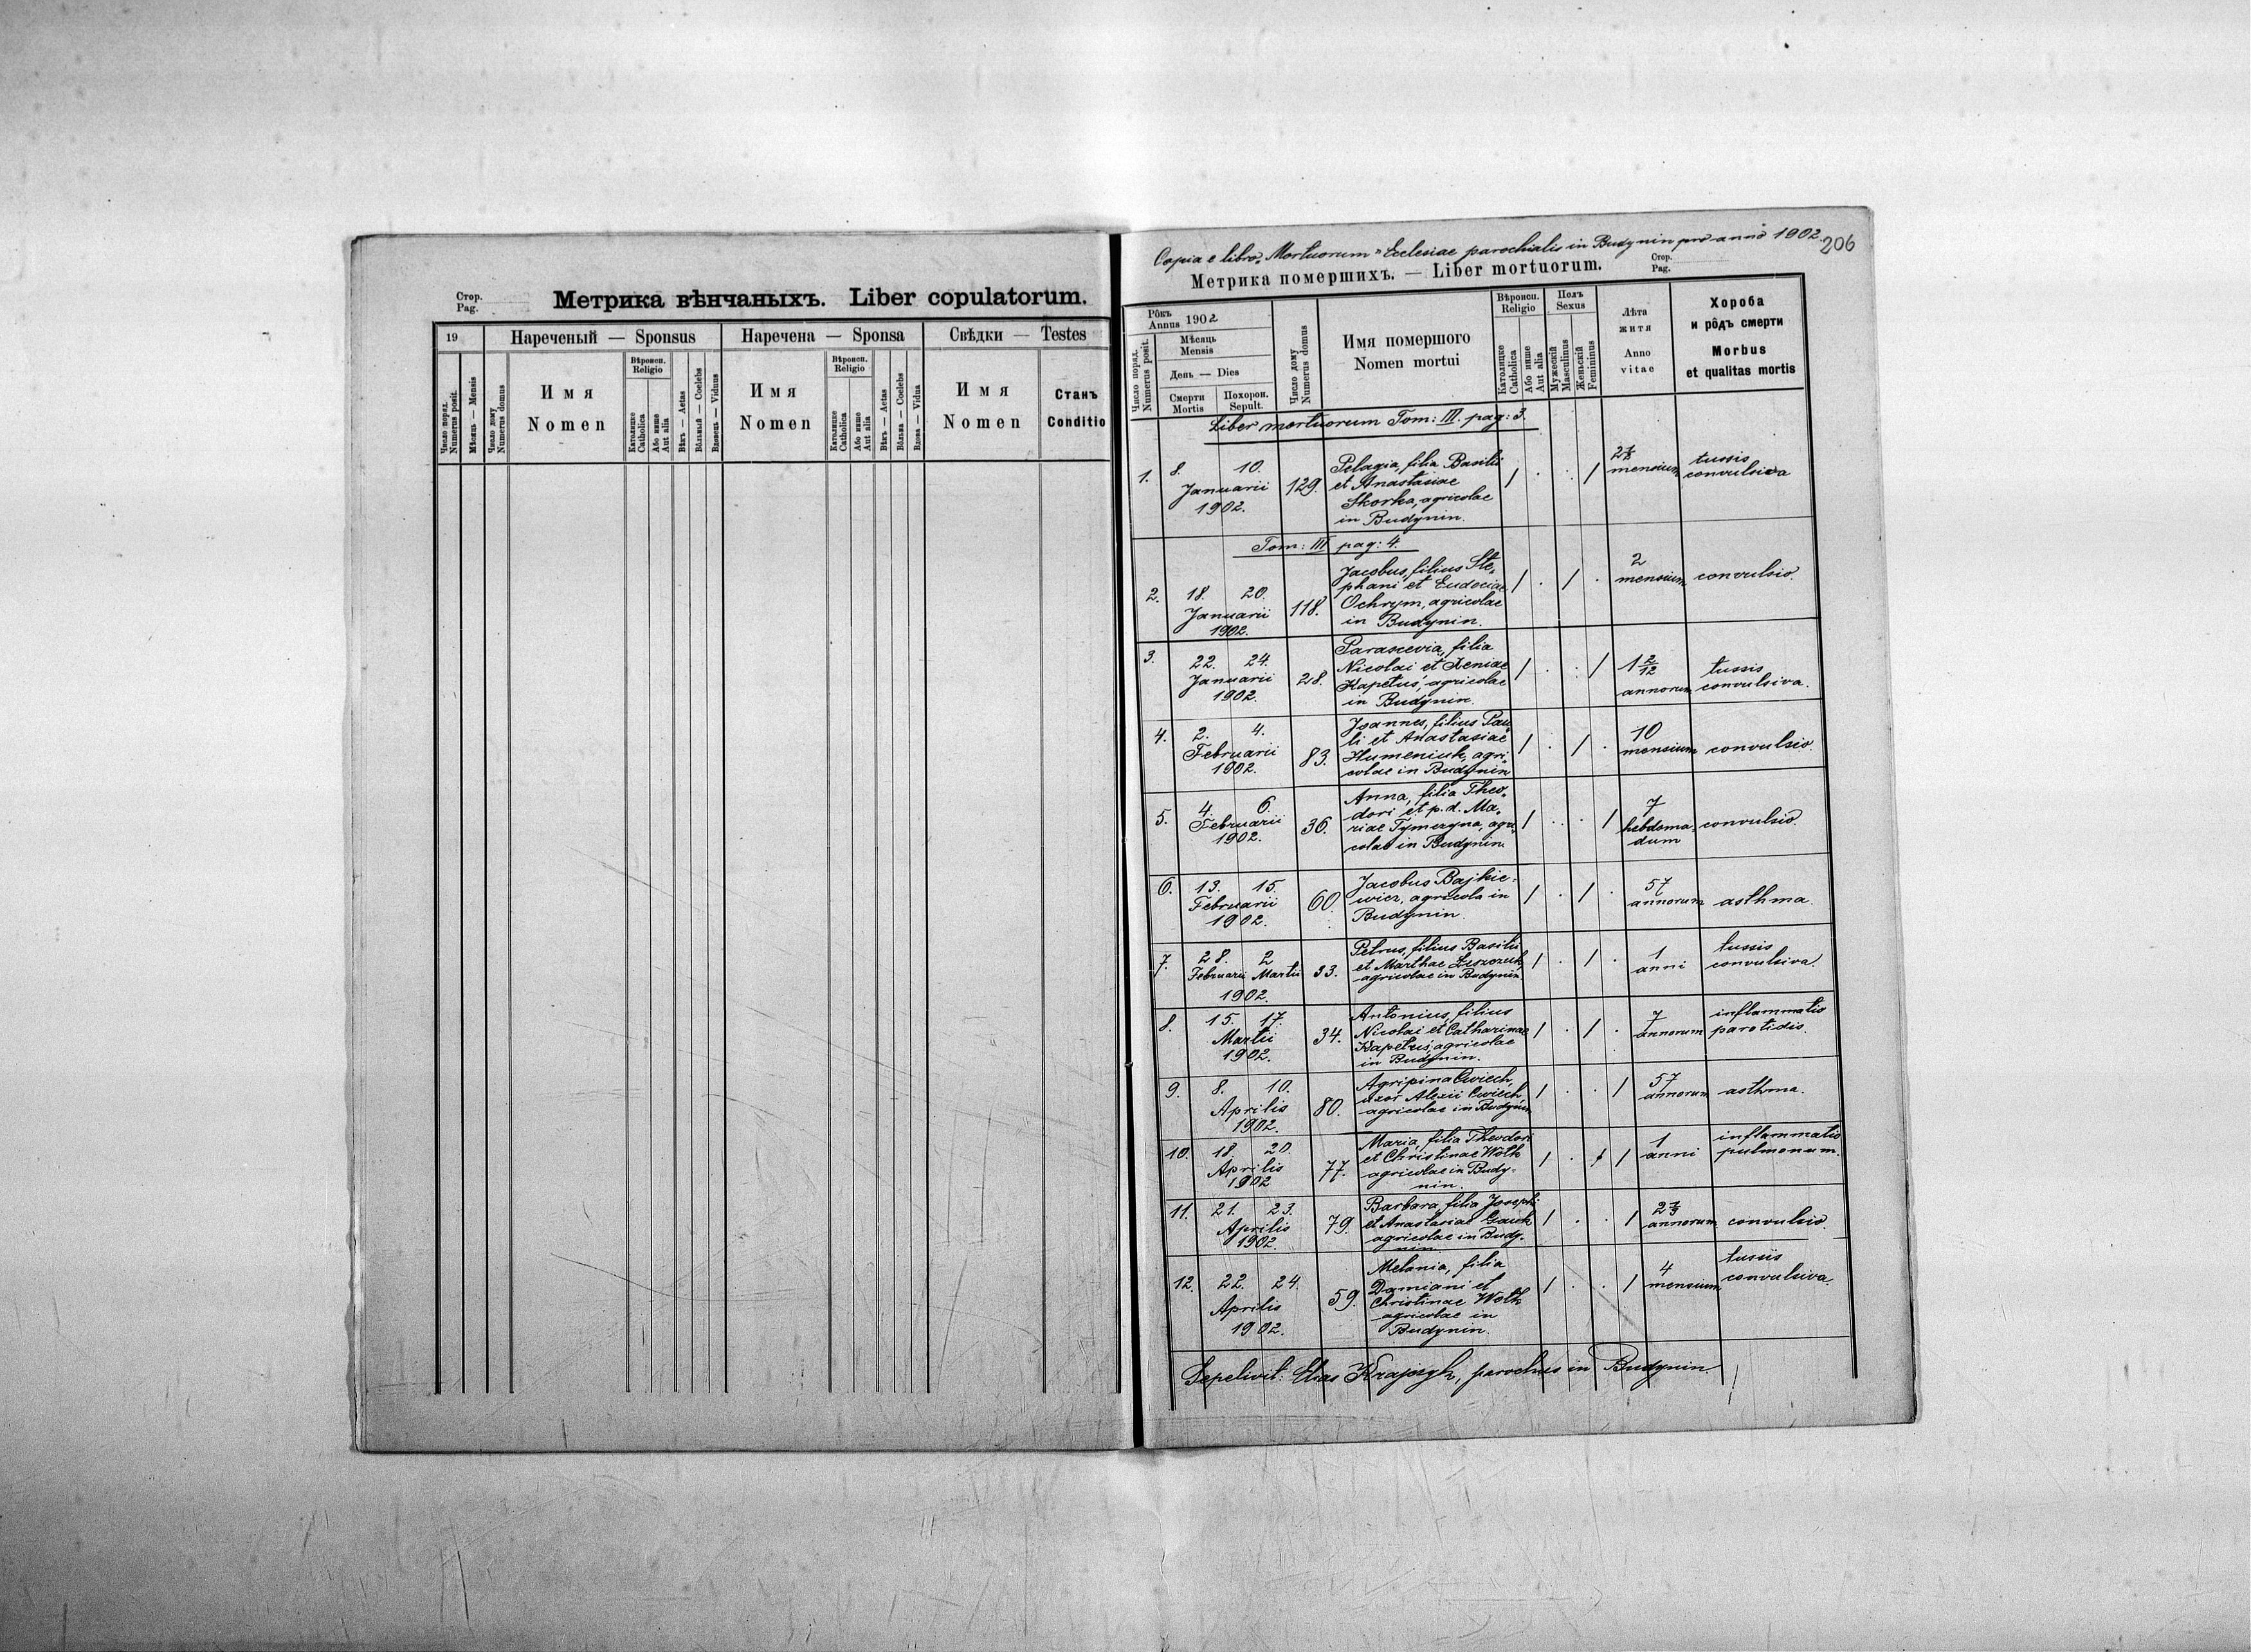 Стор.
Pag.
Метрика вѣнчаныхъ. Liber copulatorum.
19
Нареченый — Sponsus
Наречена — Sponsa
Свѣдки — Testes
Число поряд.
Numerus posit.
Мѣсяць — Mensis
Число дому
Numerus domus
Имя
Nomen
Вѣроисп.
Religio
Католицке
Catholica
Або инше
Aut alia
Вѣкъ — Aetas
Вôльный — Coelebs
Вдовець — Viduus
Имя
Nomen
Вѣроисп.
Religio
Католицке
Catholica
Або инше
Aut alia
Вѣкъ — Aetas
Вôльна — Coelebs
Вдова — Vidua
Имя
Nomen
Станъ
Conditio
Copia e libro „Mortuorum" Ecclesiae parochialis in Budynin pro anno 1902.
206
Метрика помершихъ. — Liber mortuorum.
Стор.
Pag.
Рôкъ
Annus 1902
Число поряд.
Numerus posit.
Мѣсяць
Mensis
День — Dies
Смерти
Mortis
Похорон.
Sepult.
Число дому
Numerus domus
Имя помершого
Nomen mortui
Вѣроисп.
Religio
Католицке
Catholica
Або инше
Aut alia
Полъ
Sexus
Мужескій
Masculinus
Женьскій
Femininus
Лѣта
житя
Anno
vitae
Хороба
и рôдъ смерти
Morbus
et qualitas mortis
Liber mortuorum Tom: III. pag: 3.
1. 8. 10. Januarii 1902. 129.
Pelagia, filia Basilii
et Anastasiae
Skorka, agricolae
in Budynin.
mensium
tussis
convulsiva
Tom: III pag: 4.
2. 18. 20. Januarii 1902. 118.
Jacobus, filius Ste„
phani et Eudociae
Ochrym, agricolae
in Budynin.
2
mensium
convulsio.
3. 22. 24. Januarii 1902. 28.
Parascevia, filia
Nicolai et Xeniae
Kapetuś, agricolae
in Budynin.
1 2/12
annorum
tussis
convulsiva.
4. 2. 4. Februarii 1902. 83.
Joannes, filius Pau„
li et Anastasiae
Humeniuk, agri„
colae in Budynin
10
mensium
convulsio.
5. 4. 6. Februarii 1902. 36.
Anna, filia Theo„
dori et p. d. Ma„
riae Tymczyna, agri„
colae in Budynin
7
hebdoma„
dum
convulsio.
6. 13. 15. Februarii 1902. 60
Jacobus Bajkie„
wicz, agricola in
Budynin.
57
annorum
asthma.
7. 28. Februarii 2 Martii 1902. 33.
Petrus, filius Basilii
et Marthae Leszczuk
agricolae in Budynin.
1
anni
tussis
convulsiva.
8. 15. 17. Martii 1902. 34.
Antonius, filius
Nicolai et Catharinae
Kapetuś, agricolae
in Budynin.
7
annorum
inflammatio
parotidis.
9. 8. 10. Aprilis 1902. 80.
Agripina Ćwiech,
uxor Alexii Ćwiech
agricolae in Budynin
57
annorum
asthma.
10. 18. 20. Aprilis 1902 77.
Maria, filia Theodori
et Christinae Wołk
agricolae in Budy„
nin.
1
anni
inflammatio
pulmonum.
11. 21. 23. Aprilis 1902. 79.
Barbara, filia Josephi
et Anastasiae
agricolae in Budy„
nin
annorum
convulsio.
12. 22. 24. Aprilis 1902. 59.
Melania, filia
Damiani et
Christinae Wołk
agricolae in
Budynin.
4
mensium
tussis
convulsiva.
Sepelivit: Elias parochus in Budynin.